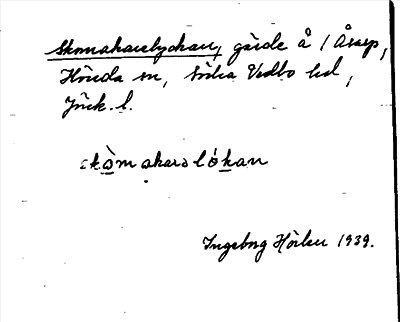 Skomakarelyckan, gärde å 1 Åsarp,
Hönda sn, Södra Vedbo hd,
Jönk. l.
skòmakarəlókan
Ingeborg Hörlen 1939.